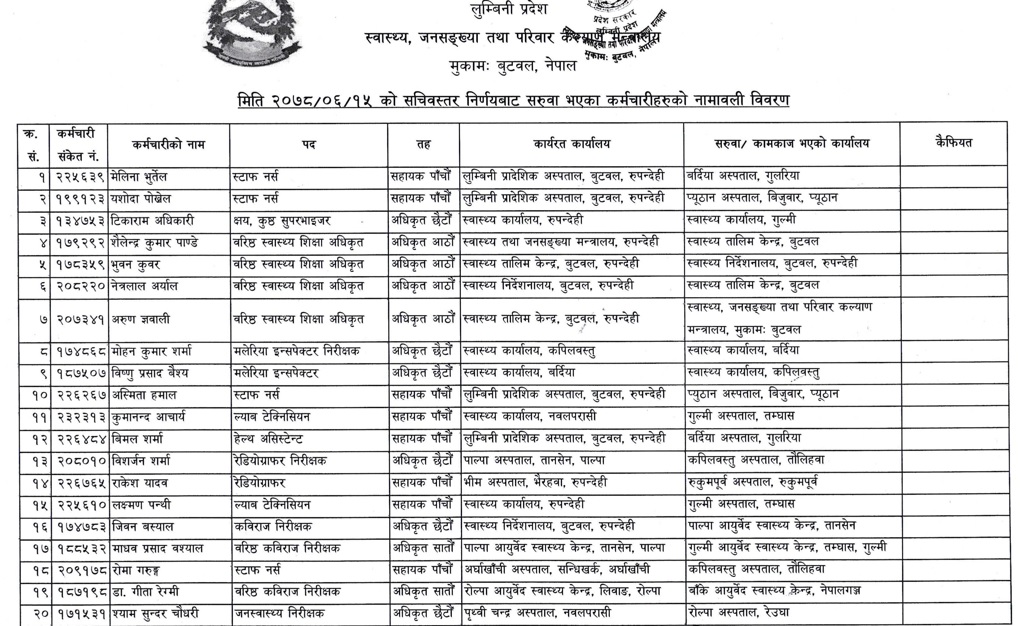 लुम्बिनी प्रदेश
स्वास्थ्य, जनसङ्ख्या तथा परिवार कल्याण मन्त्रालय
मुकामः बुटवल, नेपाल
मिति २०७८/०६/१५ को सचिवस्तर निर्णयबाट सरुवा भएका कर्मचारीहरुको नामावली विवरण
क्र. सं. कर्मचारी संकेत नं. कर्मचारीको नाम पद तह कार्यरत कार्यालय सरुवा/ कामकाज भएको कार्यालय कैफियत
१ २२५६३९ मेलिना भुर्तेल स्टाफ नर्स सहायक पाँचौं लुम्बिनी प्रादेशिक अस्पताल, बुटवल, रुपन्देही बर्दिया अस्पताल, गुलरिया
२ १९९१२३ यशोदा पोख्रेल स्टाफ नर्स सहायक पाँचौं लुम्बिनी प्रादेशिक अस्पताल, बुटवल, रुपन्देही प्यूठान अस्पताल, बिजुवार, प्यूठान
३ १३४७५३ टिकाराम अधिकारी क्षय, कुष्ठ सुपरभाइजर अधिकृत छैटौं स्वास्थ्य कार्यालय, रुपन्देही स्वास्थ्य कार्यालय, गुल्मी
४ १७९२९२ शैलेन्द्र कुमार पाण्डे वरिष्ठ स्वास्थ्य शिक्षा अधिकृत अधिकृत आठौं स्वास्थ्य तथा जनसङ्ख्या मन्त्रालय, रुपन्देही स्वास्थ्य तालिम केन्द्र, बुटवल
५ १७८३५९ भुवन कुवर वरिष्ठ स्वास्थ्य शिक्षा अधिकृत अधिकृत आठौं स्वास्थ्य तालिम केन्द्र, बुटवल, रुपन्देही स्वास्थ्य निर्देशनालय, बुटवल, रुपन्देही
६ २०८२२० नेत्रलाल अर्याल वरिष्ठ स्वास्थ्य शिक्षा अधिकृत अधिकृत आठौं स्वास्थ्य निर्देशनालय, बुटवल, रुपन्देही स्वास्थ्य तालिम केन्द्र, बुटवल
७ २०७३४१ अरुण ज्ञवाली वरिष्ठ स्वास्थ्य शिक्षा अधिकृत अधिकृत आठौं स्वास्थ्य तालिम केन्द्र, बुटवल, रुपन्देही स्वास्थ्य, जनसङ्ख्या तथा परिवार कल्याण मन्त्रालय, मुकामः बुटवल
८ १७४८६८ मोहन कुमार शर्मा मलेरिया इन्सपेक्टर निरीक्षक अधिकृत छैटौं स्वास्थ्य कार्यालय, कपिलवस्तु स्वास्थ्य कार्यालय, बर्दिया
९ १८७५०७ विष्णु प्रसाद बैश्य मलेरिया इन्सपेक्टर अधिकृत छैटौं स्वास्थ्य कार्यालय, बर्दिया स्वास्थ्य कार्यालय, कपिलवस्तु
१० २२६२६७ अस्मिता हमाल स्टाफ नर्स सहायक पाँचौं लुम्बिनी प्रादेशिक अस्पताल, बुटवल, रुपन्देही प्युठान अस्पताल, बिजुवार, प्यूठान
११ २३२३१३ कुमानन्द आचार्य ल्याव टेक्निसियन सहायक पाँचौं स्वास्थ्य कार्यालय, नवलपरासी गुल्मी अस्पताल, तम्घास
१२ २२६४८४ बिमल शर्मा हेल्थ असिस्टेन्ट सहायक पाँचौं लुम्बिनी प्रादेशिक अस्पताल, बुटवल, रुपन्देही बर्दिया अस्पताल, गुलरिया
१३ २०८०१० बिशर्जन शर्मा रेडियोग्राफर निरीक्षक अधिकृत छैटौं पाल्पा अस्पताल, तानसेन, पाल्पा कपिलवस्तु अस्पताल, तौलिहवा
१४ २२६७६५ राकेश यादव रेडियोग्राफर सहायक पाँचौं भीम अस्पताल, भैरहवा, रुपन्देही रुकुमपूर्व अस्पताल, रुकुमपूर्व
१५ २२५६१० लक्ष्मण पन्थी ल्याव टेक्निसियन सहायक पाँचौं स्वास्थ्य कार्यालय, रुपन्देही गुल्मी अस्पताल, तम्घास
१६ १७४७८३ जिवन बस्याल कविराज निरीक्षक अधिकृत छैटौं स्वास्थ्य निर्देशनालय, बुटवल, रुपन्देही पाल्पा आयुर्वेद स्वास्थ्य केन्द्र, तानसेन
१७ १८८५३२ माधव प्रसाद बश्याल वरिष्ठ कविराज निरीक्षक अधिकृत सातौं पाल्पा आयुर्वेद स्वास्थ्य केन्द्र, तानसेन, पाल्पा गुल्मी आयुर्वेद स्वास्थ्य केन्द्र, तम्घास, गुल्मी
१८ २०९१७८ रोमा गरुङ्ग स्टाफ नर्स सहायक पाँचौं अर्घाखाँची अस्पताल, सन्धिखर्क, अर्घाखाँची कपिलवस्तु अस्पताल, तौलिहवा
१९ १८७१९८ डा. गीता रेग्मी वरिष्ठ कविराज निरीक्षक अधिकृत सातौं रोल्पा आयुर्वेद स्वास्थ्य केन्द्र, लिवाङ, रोल्पा बाँके आयुर्वेद स्वास्थ्य केन्द्र, नेपालगञ्ज
२० १७१५३१ श्याम सुन्दर चौधरी जनस्वास्थ्य निरीक्षक अधिकृत छैटौं पृथ्वी चन्द्र अस्पताल, नवलपरासी रोल्पा अस्पताल, रेउघा